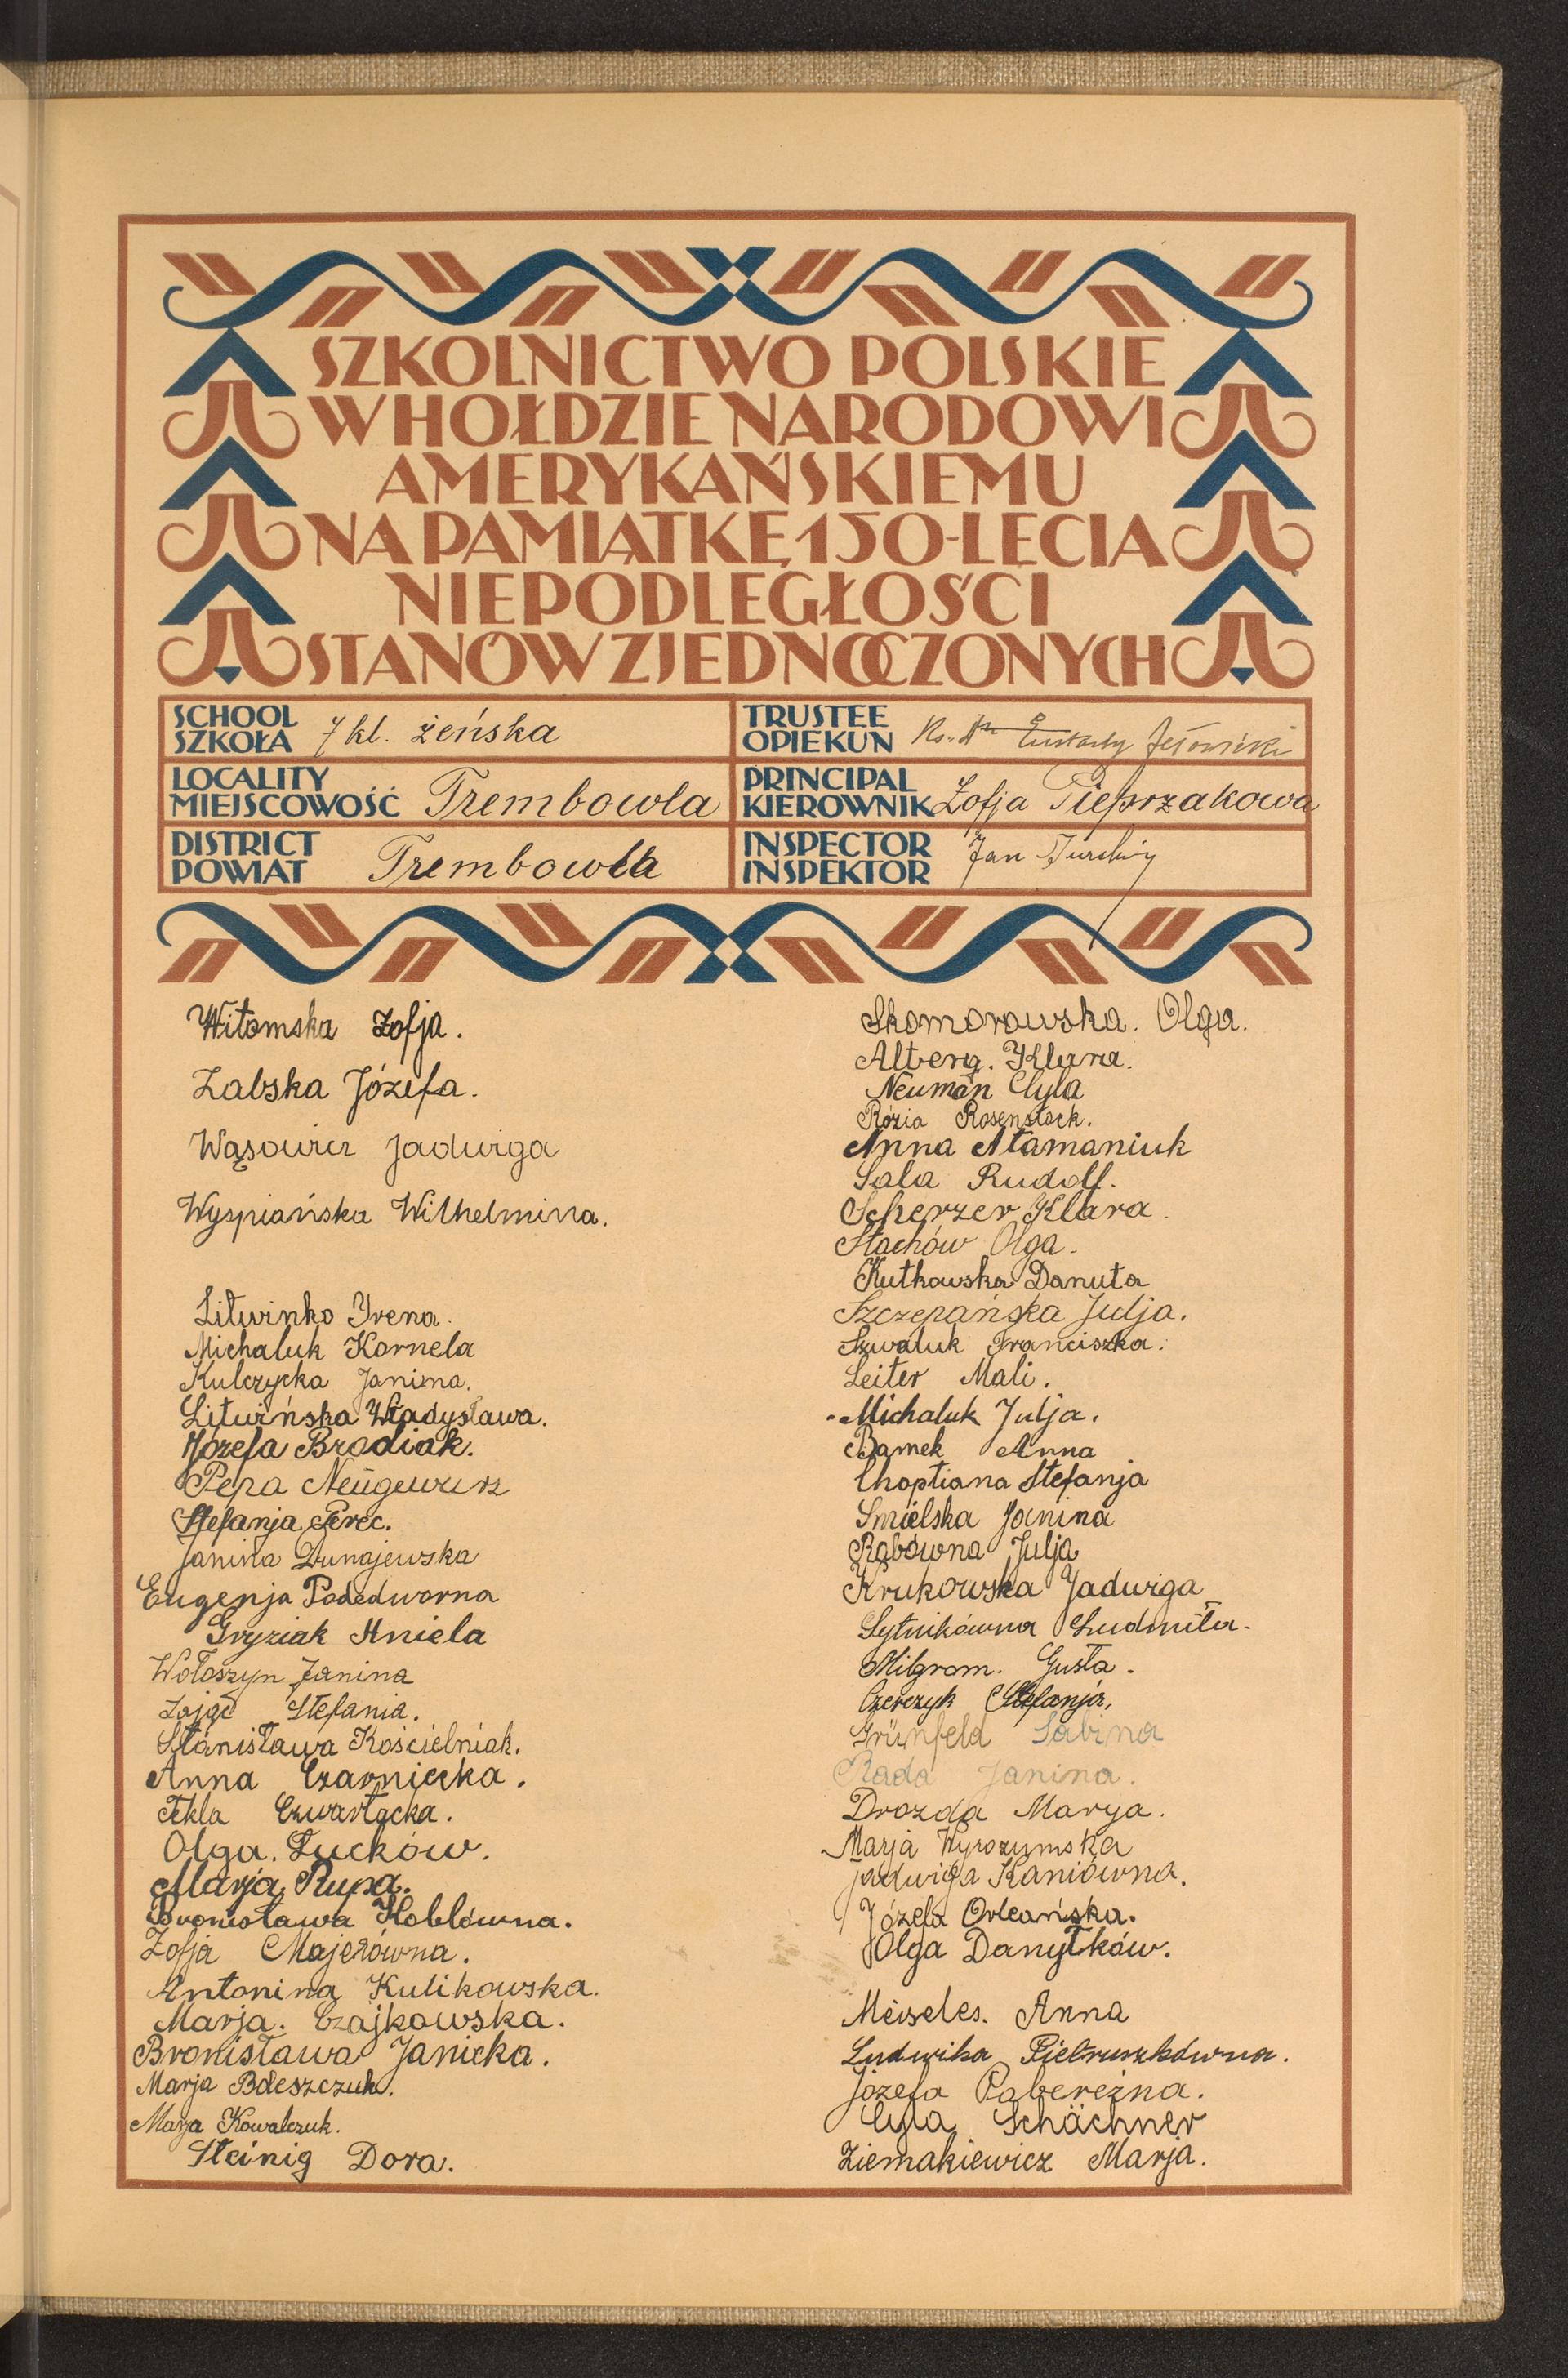 SZKOLNICTWO POLSKIE
W HOŁDZIE NARODOWI
AMERYKAŃSKIEMU
NA PAMIĄTKĘ 150-LECIA
NIEPODLEGŁOŚCI
STANÓW ZJEDNOCZONYCH
SCHOOL
SZKOŁA 7 kl. żeńska
TRUSTEE
OPIEKUN Ks. Dr. Eustachy Jełowicki
LOCALITY
MIEJSCOWOŚĆ Trembowla
PRINCIPAL
KIEROWNIK Zofja Pieprzakowa
DISTRICT
POWIAT Trembowla
INSPECTOR
INSPEKTOR Jan
Witomska Zofja.
Zabska Józefa.
Wąsowicz Jadwiga
Wyspiańska Wilhelmina.
Litwinko Yrena.
Michaluk Kornela
Kulczycka Janina.
Litwińska Władysława.
Józefa Brodiak.
Pepa Neügewurz
Stefanja Perec.
Janina Dunajewska
Eugenja Podedworna
Gryziak Aniela
Wołoszyn Janina
Zając Stefania.
Stanisława Kościelniak.
Anna Czarniecka.
Tekla Czwartacka.
Olga. Łucków.
Marja Rupa.
Bronisława Koblówna.
Zofja Majerówna.
Antonina Kulikowska.
Marja. Czajkowska.
Bronisława Janicka.
Marja Bdeszczuk.
Marja Kowalczuk.
Steinig Dora.
Skomorowska. Olga.
Alberg. Klara.
Neuman Cyla
Rózia Rosenstock.
Anna Atamaniuk
Sala Rudolf.
Scherzer Klara.
Stachów Olga.
Kutkowska Danuta
Szczepańska Julja.
Szwaluk Franciszka.
Leiter Mali.
Michaluk Julja.
Bamek Anna
Choptiana Stefanja
Smielska Janina
Rabówna Julja
Krukowska Jadwiga
Sytnikówna Ludmiła.
Milgrom. Gusta.
Czerczyk Stefanja.
Grünfeld Sabina
Rada Janina.
Drozda Marya.
Marja Wyrozumska
Jadwiga Kaniówna.
Józefa Orleańska.
Olga Danyłków.
Meiseles. Anna
Ludwika Pietruszkówna.
Józefa Pobereżna.
Cyla Schächner
Ziemakiewicz Marja.